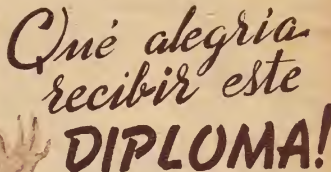 Qué alegria
recibir este
DIPLOMA!